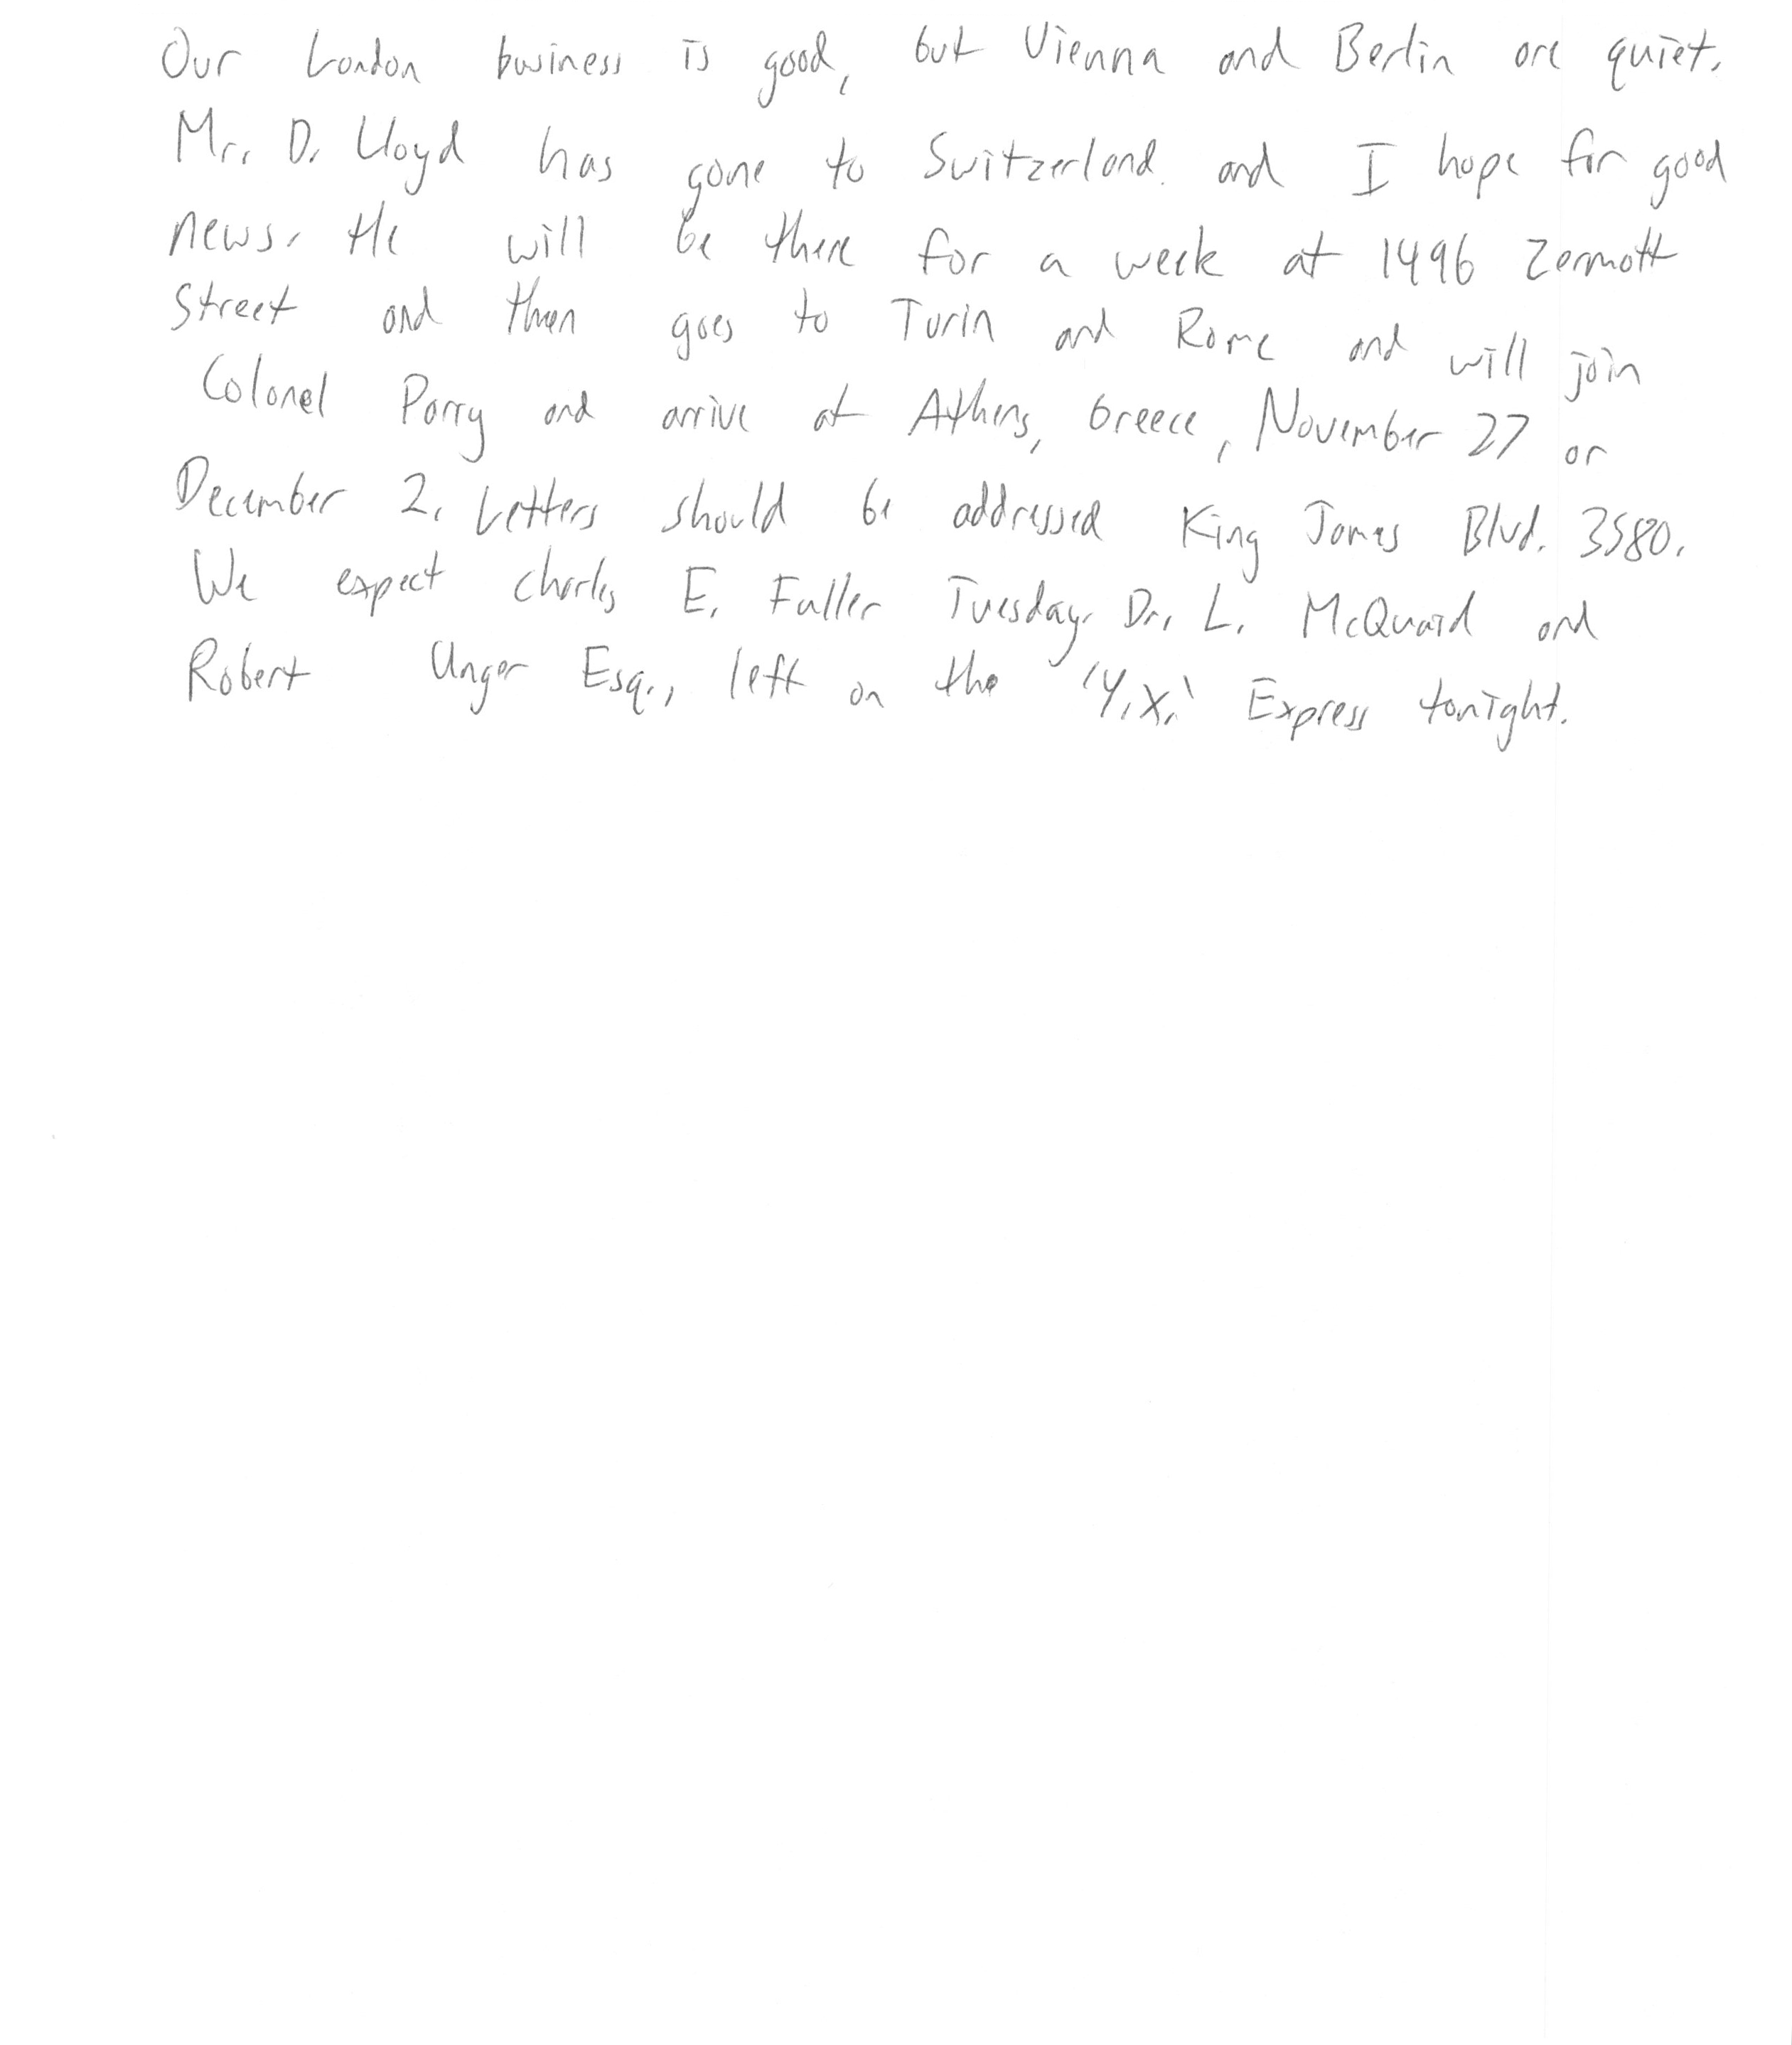 Our London business is good, but Vienna and Berlin are quiet.
Mr. D. Lloyd has gone to Switzerland. and I hope for good
news. He will be there for a week at 1496 Zermott
Street and then goes to Turin and Rome and will join
Colonel Parry and arrive at Athens, Greece, November 27 or
December 2. Letters should be addressed King James Blvd. 3580.
We expect Charles E. Fuller Tuesday. Dr. L. McQuaid and
Robert Unger Esq., left on the 'Y.X.' Express tonight.